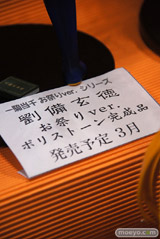 一騎当千 お祭りver. シリーズ
劉備玄徳
お祭りver.
ポリストーン完成品
発売予定 3月
moeyo.com